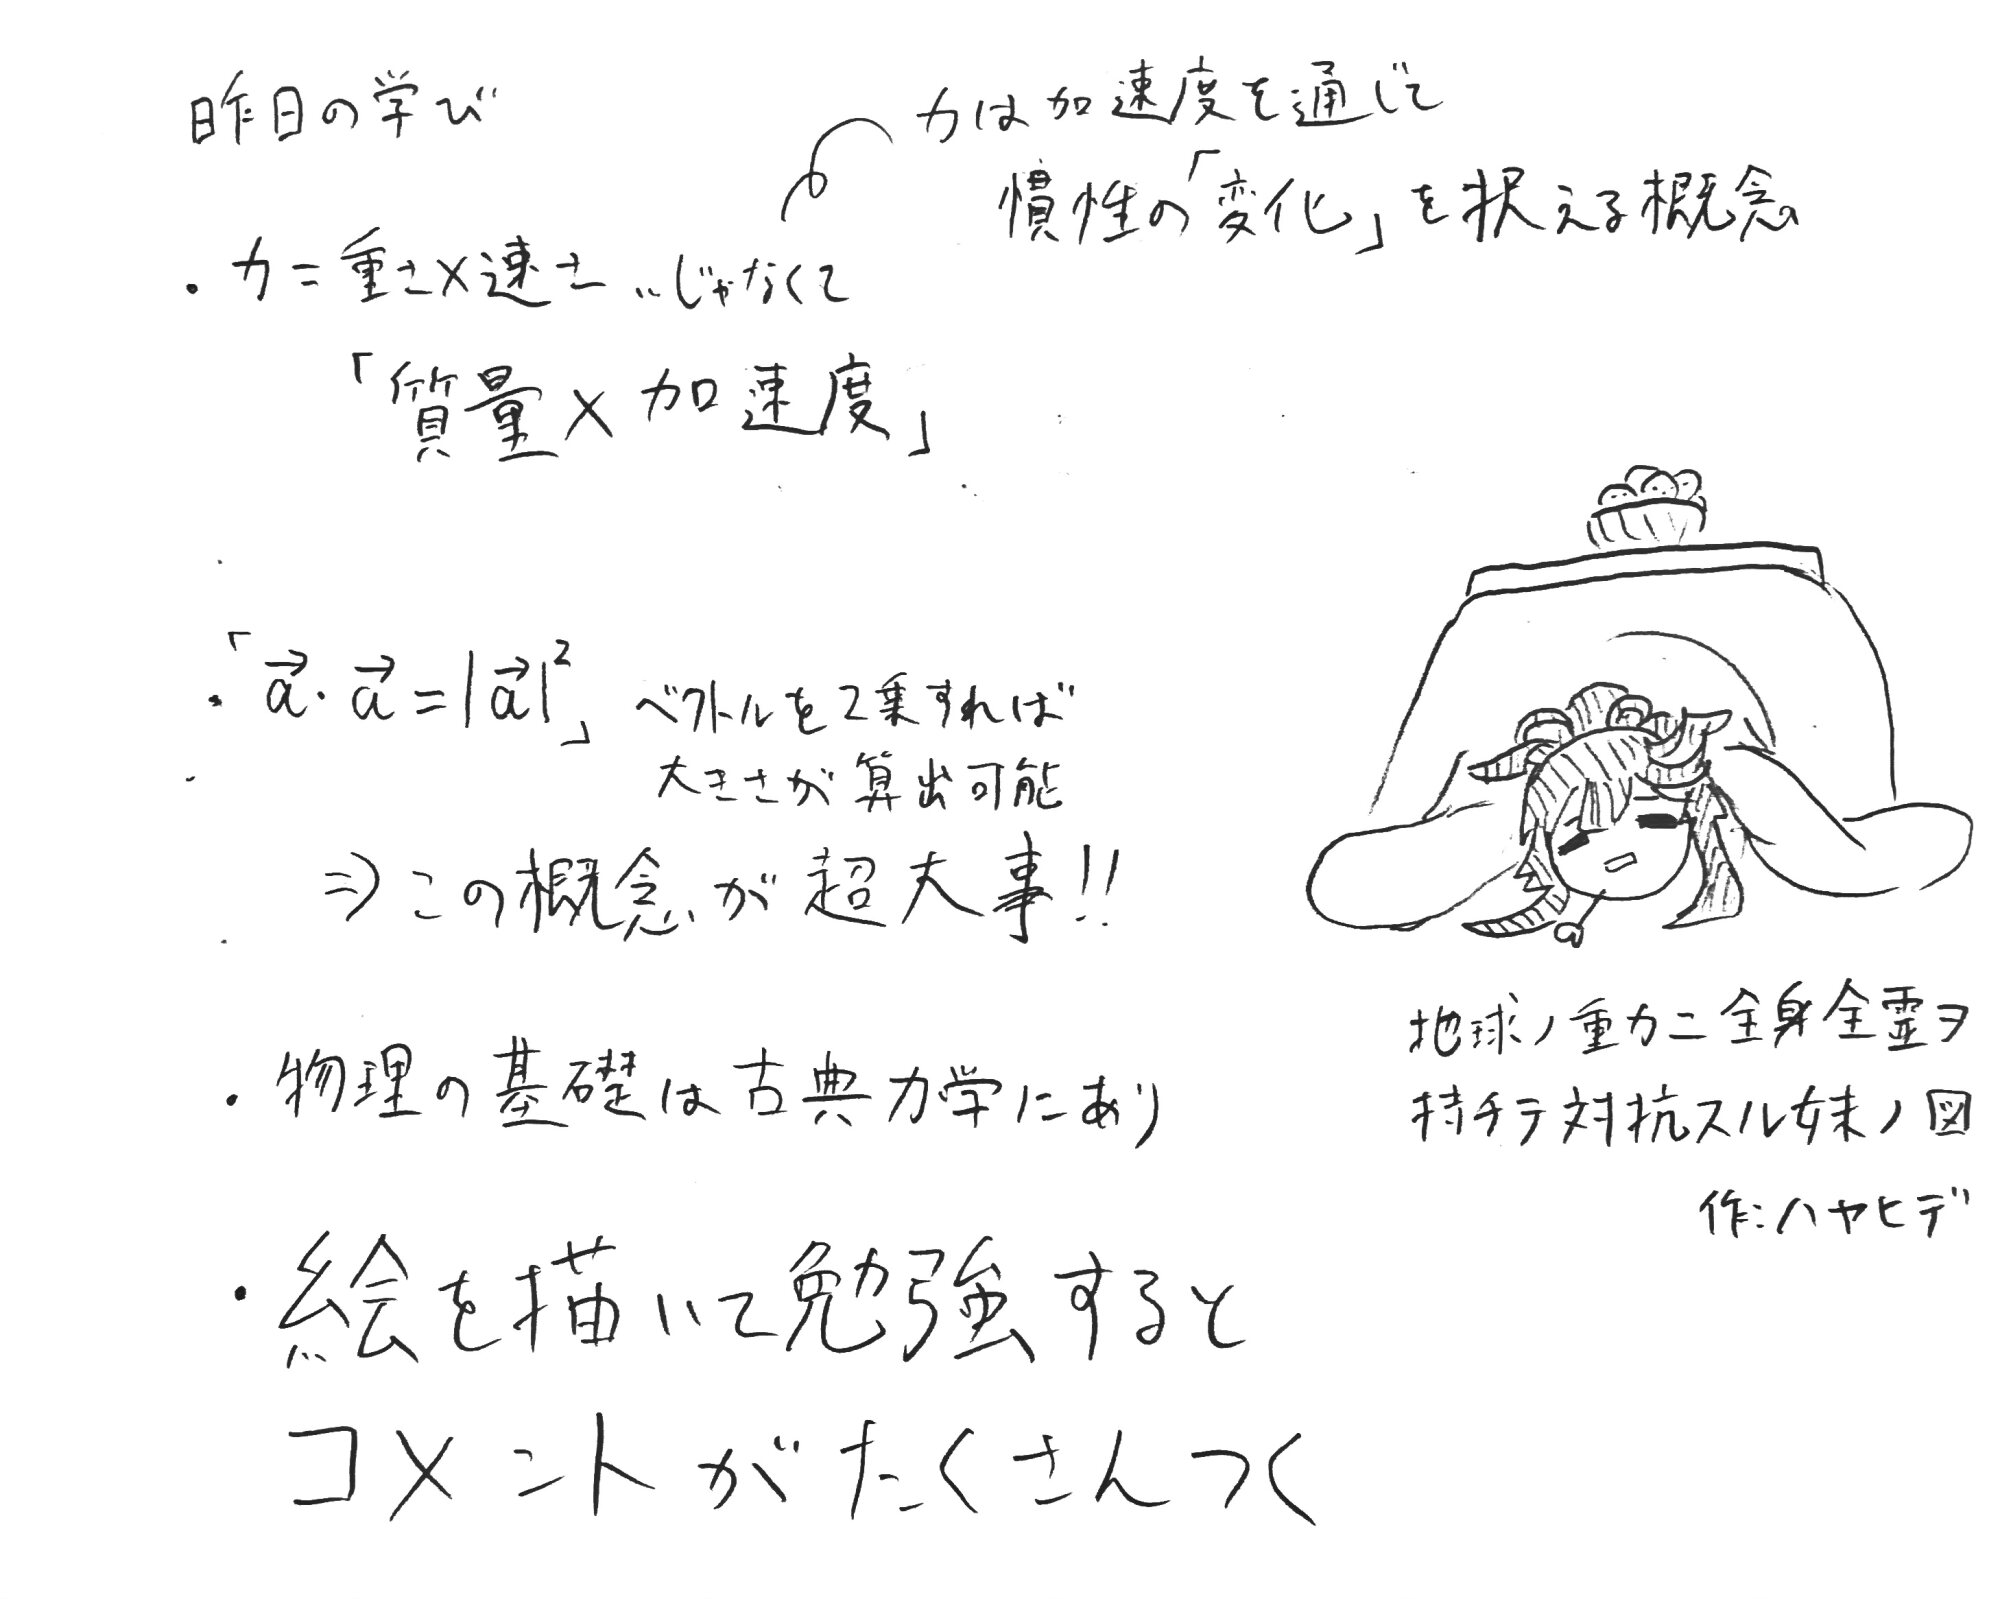 昨日の学び
力は加速度を通じて
慣性の「変化」を捉える概念
・力＝重さ×速さ…じゃなくて
「質量×加速度」
・「a⃗・a⃗＝|a⃗|²」ベクトルを2乗すれば
大きさが算出可能
⇒この概念が超大事!!
・物理の基礎は古典力学にあり
・絵を描いて勉強すると
コメントがたくさんつく
地球ノ重力ニ全身全霊ヲ
持チテ対抗スル妹ノ図
作:ハヤヒデ